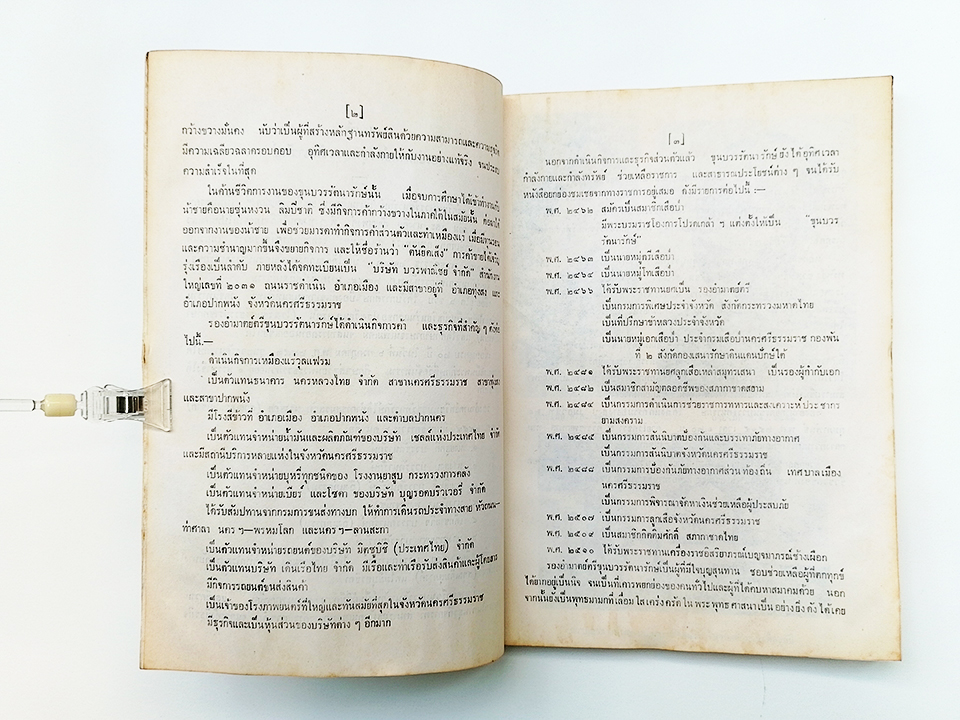 [๒]
กว้างขวางมั่นคง นับว่าเป็นผู้ที่สร้างหลักฐานทรัพย์สินด้วยความสามารถและความสุจริต
มีความเฉลียวฉลาดรอบคอบ อุทิศเวลาและกำลังกายให้กับงานอย่างแท้จริง จนประสบ
ความสำเร็จในที่สุด
ในด้านชีวิตการงานของขุนบวรรัตนารักษ์นั้น เมื่อจบการศึกษาได้เข้าทำงานกับ
น้าชายคือนายซุ่นหงวน ลิมปิชาติ ซึ่งมีกิจการค้ากว้างขวางในภาคใต้ในสมัยนั้น ต่อมาได้
ออกจากงานของน้าชาย เพื่อช่วยมารดาทำกิจการค้าส่วนตัวและทำเหมืองแร่ เมื่อมีทุนรอน
และความชำนาญมากขึ้นจึงขยายกิจการ และให้ชื่อร้านว่า "ตันยิดเส็ง" การค้าขายได้เจริญ
รุ่งเรืองเป็นลำดับ ภายหลังได้จดทะเบียนเป็น "บริษัท บวรพาณิชย์ จำกัด" สำนักงาน
ใหญ่เลขที่ ๒๐๓๑ ถนนราชดำเนิน อำเภอเมือง และมีสาขาอยู่ที่ อำเภอทุ่งสง และ
อำเภอปากพนัง จังหวัดนครศรีธรรมราช
รองอำมาตย์ตรีขุนบวรรัตนารักษ์ได้ดำเนินกิจการค้า และธุรกิจที่สำคัญ ๆ ดังต่อ
ไปนี้.—
ดำเนินกิจการเหมืองแร่วุลแฟรม
เป็นตัวแทนธนาคาร นครหลวงไทย จำกัด สาขานครศรีธรรมราช สาขาทุ่งสง
และสาขาปากพนัง
มีโรงสีข้าวที่ อำเภอเมือง อำเภอปากพนัง และตำบลปากนคร
เป็นตัวแทนจำหน่ายน้ำมันและผลิตภัณฑ์ของบริษัท เชลล์แห่งประเทศไทย จำกัด
และมีสถานีบริการหลายแห่งในจังหวัดนครศรีธรรมราช
เป็นตัวแทนจำหน่ายบุหรี่ทุกชนิดของ โรงงานยาสูบ กระทรวงการคลัง
เป็นตัวแทนจำหน่ายเบียร์ และโซดา ของบริษัท บุญรอดบริวเวอรี่ จำกัด
ได้รับสัมปทานจากกรมการขนส่งทางบก ให้ทำการเดินรถประจำทางสาย หัวถนน—
ท่าศาลา นคร ฯ—พรหมโลก และนคร ฯ—ลานสะกา
เป็นตัวแทนจำหน่ายรถยนต์ของบริษัท มิตซูบิชิ (ประเทศไทย) จำกัด
เป็นตัวแทนบริษัท เดินเรือไทย จำกัด มีเรือและท่าเรือรับส่งสินค้าและผู้โดยสาร
มีกิจการรถยนต์ขนส่งสินค้า
เป็นเจ้าของโรงภาพยนตร์ที่ใหญ่และทันสมัยที่สุดในจังหวัดนครศรีธรรมราช
มีธุรกิจและเป็นหุ้นส่วนของบริษัทต่าง ๆ อีกมาก
[๓]
นอกจากดำเนินกิจการและธุรกิจส่วนตัวแล้ว ขุนบวรรัตนารักษ์ ยังได้ อุทิศ เวลา
กำลังกายและกำลังทรัพย์ ช่วยเหลือราชการ และสาธารณประโยชน์ต่าง ๆ จนได้รับ
หนังสือยกย่องชมเชยจากทางราชการอยู่เสมอ ดังมีรายการต่อไปนี้ :—
พ.ศ. ๒๔๖๒ สมัครเป็นสมาชิกเสือป่า
มีพระบรมราชโองการโปรดเกล้า ๆ แต่งตั้งให้เป็น "ขุนบวร
รัตนารักษ์"
พ.ศ. ๒๔๖๓ เป็นนายหมู่ตรีเสือป่า
พ.ศ. ๒๔๖๔ เป็นนายหมู่โทเสือป่า
พ.ศ. ๒๔๖๖ ได้รับพระราชทานยศเป็น รองอำมาตย์ตรี
เป็นกรมการพิเศษประจำจังหวัด สังกัดกระทรวงมหาดไทย
เป็นที่ปรึกษาข้าหลวงประจำจังหวัด
เป็นนายหมู่เอกเสือป่า ประจำกรมเสือป่านครศรีธรรมราช กองพัน
ที่ ๒ สังกัดกองเสนารักษาดินแดนปักษ์ใต้
พ.ศ. ๒๔๘๑ ได้รับพระราชทานยศลูกเสือเหล่าสมุทรเสนา เป็นรองผู้กำกับเอก
พ.ศ. ๒๔๘๒ เป็นสมาชิกสามัญตลอดชีพของสภากาชาดสยาม
พ.ศ. ๒๔๘๔ เป็นกรรมการดำเนินการช่วยราชการทหารและสงเคราะห์ประชากร
ยามสงคราม
พ.ศ. ๒๔๘๕ เป็นกรรมการสันนิบาตป้องกันและบรรเทาภัยทางอากาศ
เป็นกรรมการสันนิบาตจังหวัดนครศรีธรรมราช
พ.ศ. ๒๔๘๘ เป็นกรรมการป้องกันภัยทางอากาศส่วนท้องถิ่น เทศบาลเมือง
นครศรีธรรมราช
เป็นกรรมการพิจารณาจัดหาเงินช่วยเหลือผู้ประสบภัย
พ.ศ. ๒๕๐๗ เป็นกรรมการลูกเสือจังหวัดนครศรีธรรมราช
พ.ศ. ๒๕๐๙ เป็นสมาชิกกิตติมศักดิ์ สภากาชาดไทย
พ.ศ. ๒๕๑๐ ได้รับพระราชทานเครื่องราชอิสริยาภรณ์เบญจมาภรณ์ช้างเผือก
รองอำมาตย์ตรีขุนบวรรัตนารักษ์เป็นผู้ที่มีใจบุญสุนทาน ชอบช่วยเหลือผู้ที่ตกทุกข์
ได้ยากอยู่เป็นนิจ จนเป็นที่เคารพยกย่องของคนทั่วไปและผู้ที่ได้คบหาสมาคมด้วย นอก
จากนั้นยังเป็นพุทธมามกที่เลื่อมใสเคร่งครัดในพระพุทธศาสนาเป็นอย่างยิ่ง ดังได้เคย